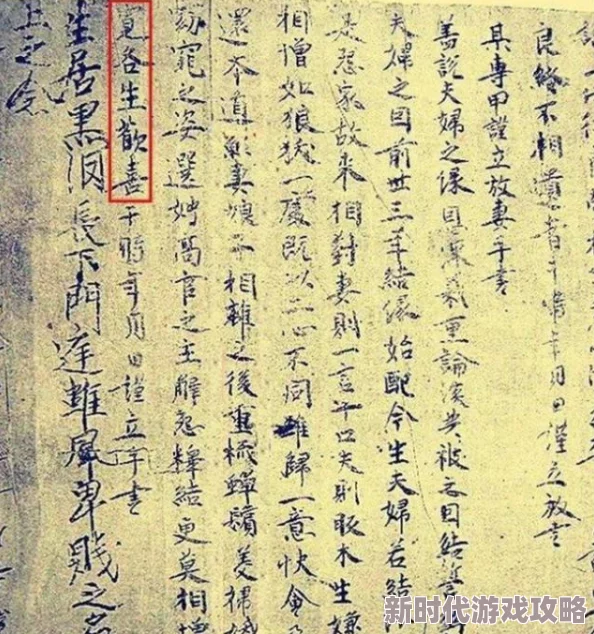 良終不相遺者于時年月日謹立放書
其專甲謹立放妻手書
蓋說夫婦之緣恩深義重論談共被之因結誓
夫婦之因前世三年結緣始配今生夫婦若結
是怨家故來相對妻則一言十口夫則販木生嫌
相憎如狼一處既以二心不同難歸一意快會
還本道願妻娘子相離之後重梳蟬鬢美掃
窈窕之姿選娉高官之主解怨釋結更莫相憎
寬各生歡喜于時年月日謹立手書
生居黑長下門庭雖卑賤之名
上之念
新时代游戏攻略